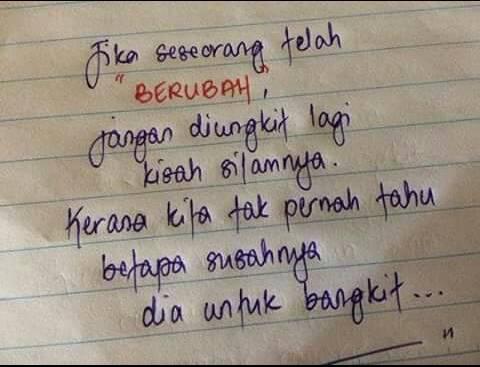 Jika seseorang telah
"BERUBAH",
jangan diungkit lagi
kisah silamnya.
Kerana kita tak pernah tahu
betapa susahnya
dia untuk bangkit...
"